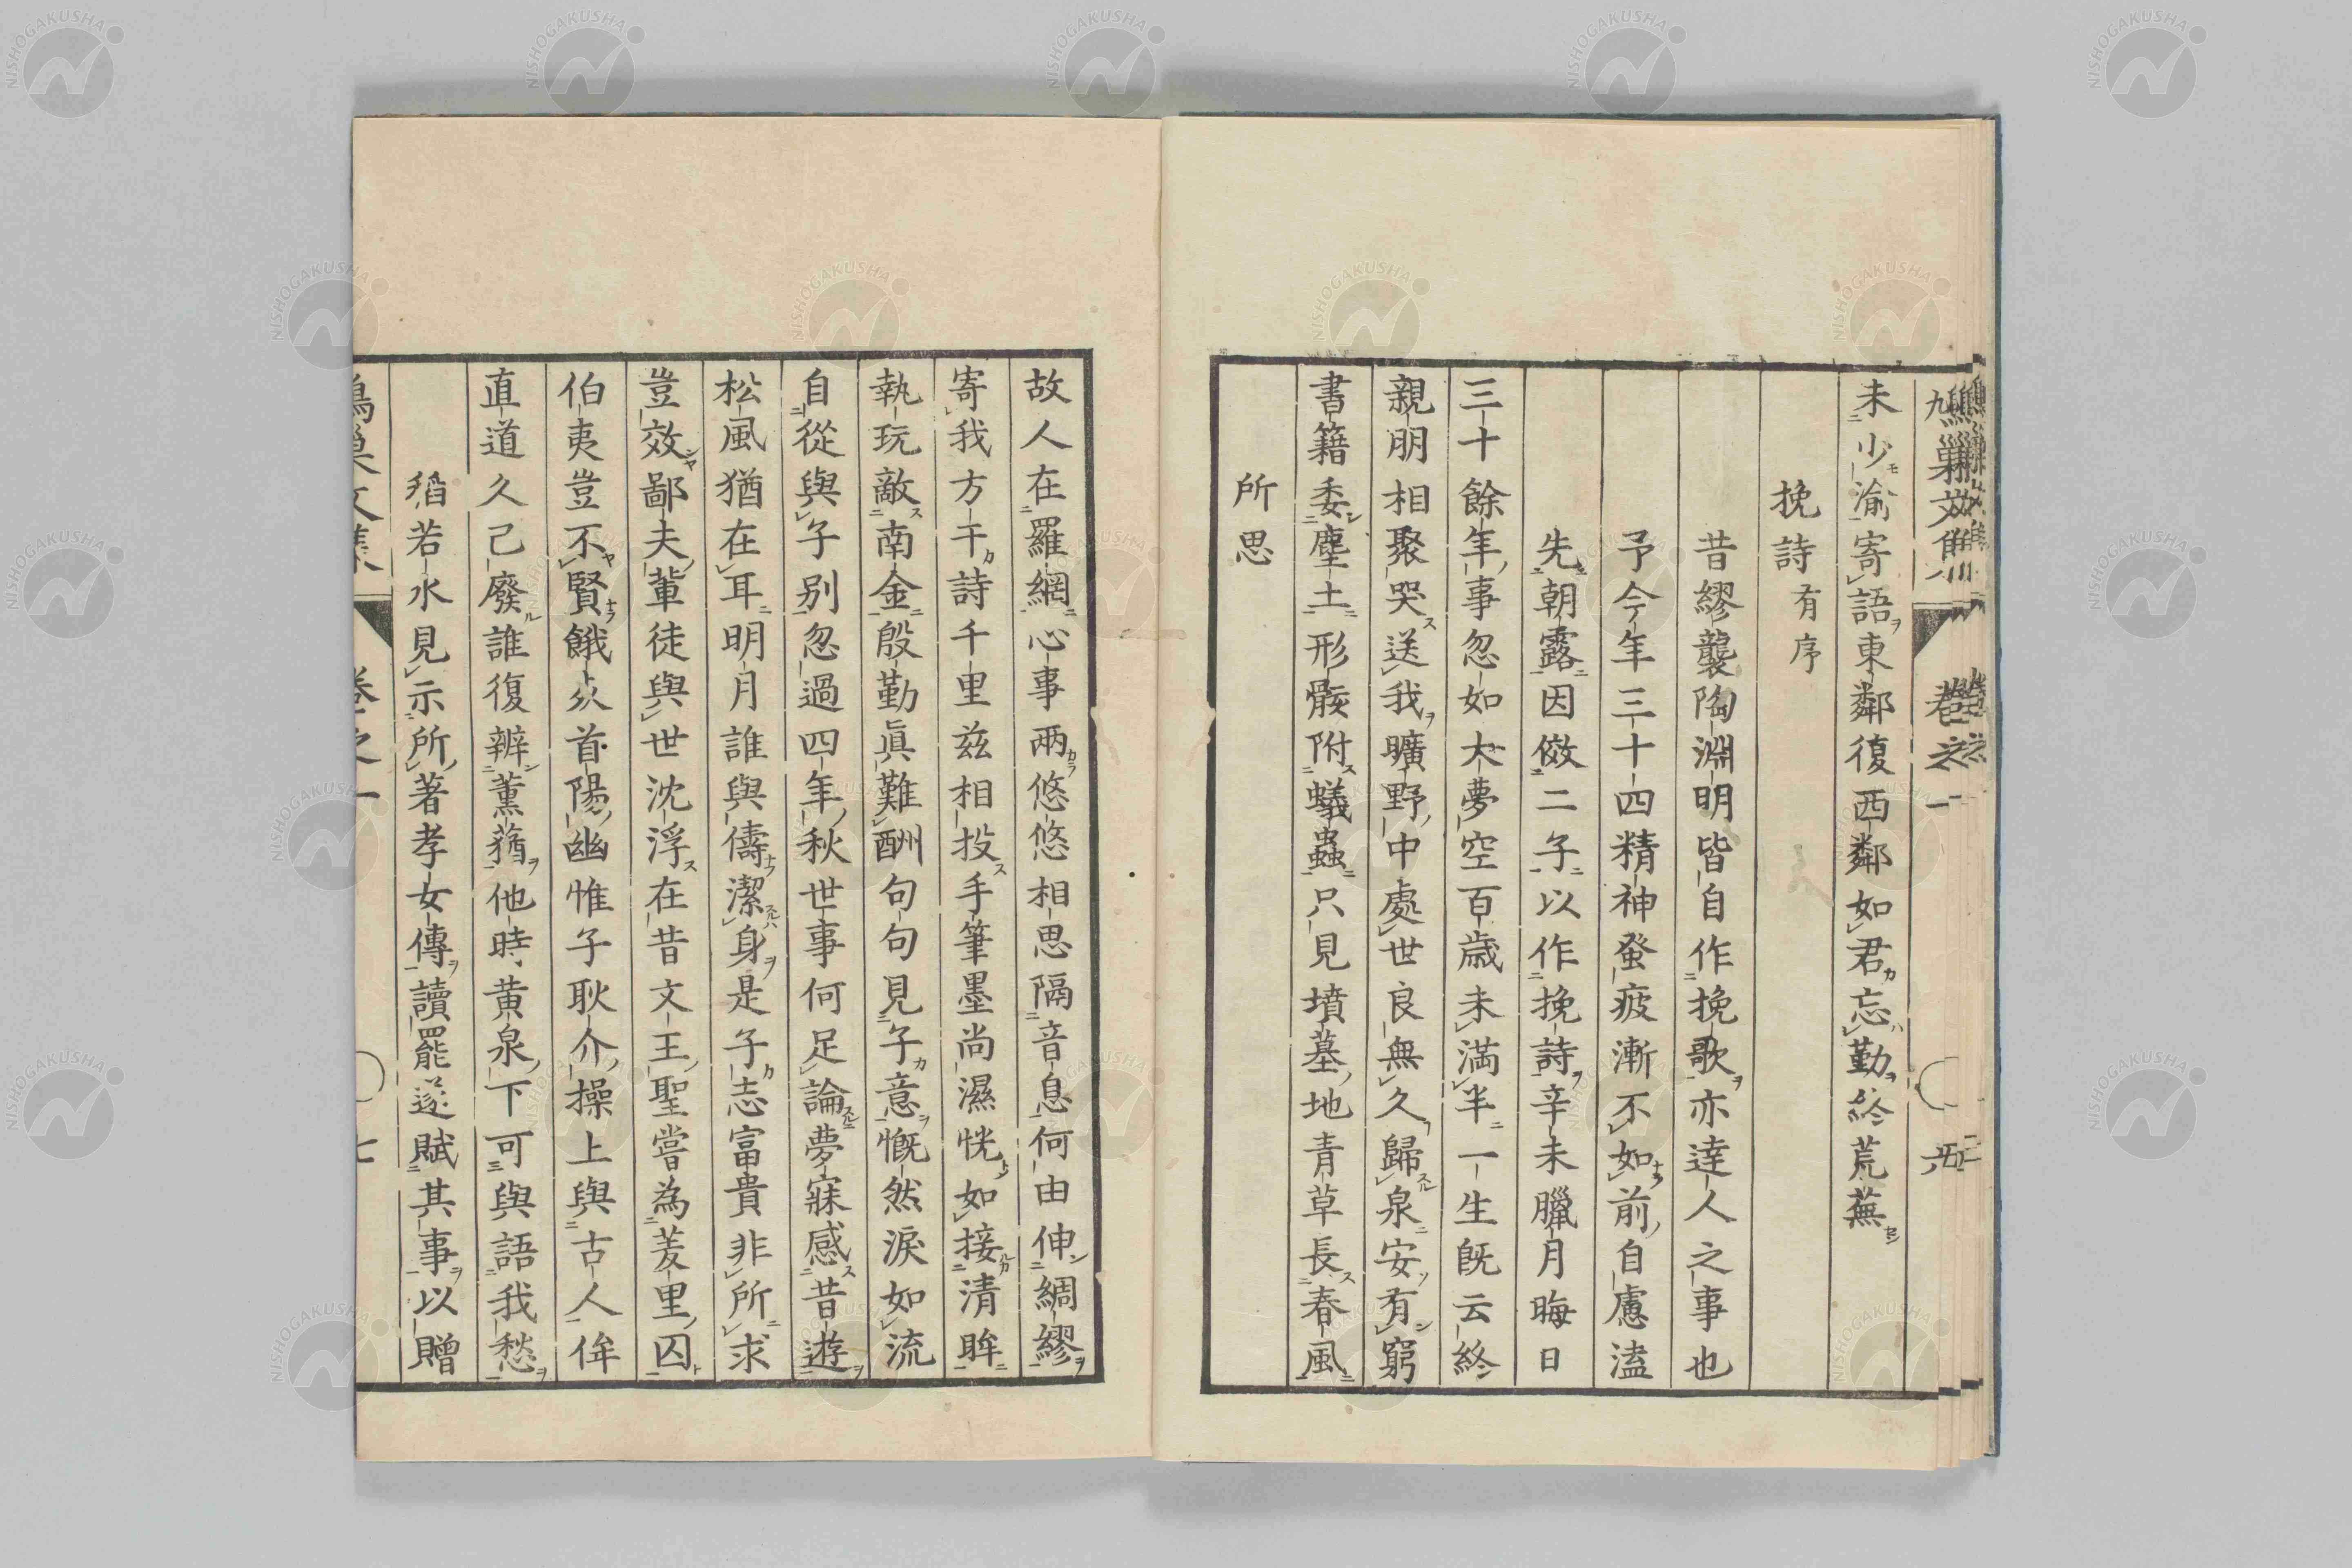 未少渝寄語東鄰復西鄰如君忘勤終荒蕪
挽詩有序
昔繆襲陶淵明皆自作挽歌亦達人之事也
予今年三十四精神發疲漸不如前自慮溘
先朝露因傚二子以作挽詩辛未臘月晦日
三十餘年事忽如大夢空百歳未満半一生旣云終
親朋相聚哭送我曠野中處世良無久歸泉安有窮
書籍委塵土形骸附蟻蟲只見墳墓地青草長春風
所思
故人在羅網心事兩悠悠相思隔音息何由伸綢繆
寄我方干詩千里玆相投手筆墨尚濕恍如接清眸
執玩敵南金殷勤眞難酬句句見子意慨然淚如流
自從與子別忽過四年秋世事何足論夢寐感昔遊
松風猶在耳明月誰與儔潔身是子志富貴非所求
豈效鄙夫輩徒與世沈浮在昔文王聖嘗為羑里囚
伯夷豈不賢餓死首陽幽惟子耿介操上與古人侔
直道久已廢誰復辨薰蕕他時黄泉下可與語我愁
稻若水見示所著孝女傳讀罷遂賦其事以贈
鳩巢文集 卷之一 七
NISHOGAKUSHA